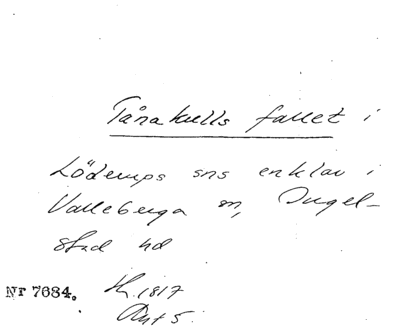 Tånakulls fallet i
Löderups sns enklav i
Valleberga sn, Ingel-
stad hd
Nr 7684. H. 1817
Akt 5.